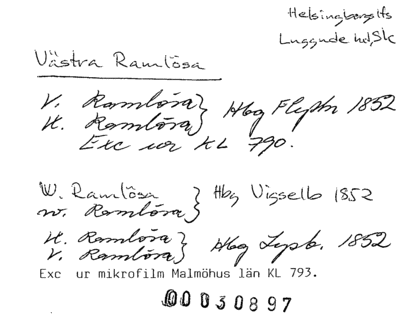 Helsingborgs lfs
Luggude hd, Sk
Västra Ramlösa
V. Ramlösa } Hbg Flyttn 1852
W. Ramlösa }
Exc ur KL 790.
W. Ramlösa } Hbg Vigselb 1852
w. Ramlösa }
W. Ramlösa } Hbg 1852
V. Ramlösa }
Exc ur mikrofilm Malmöhus län KL 793.
00030897